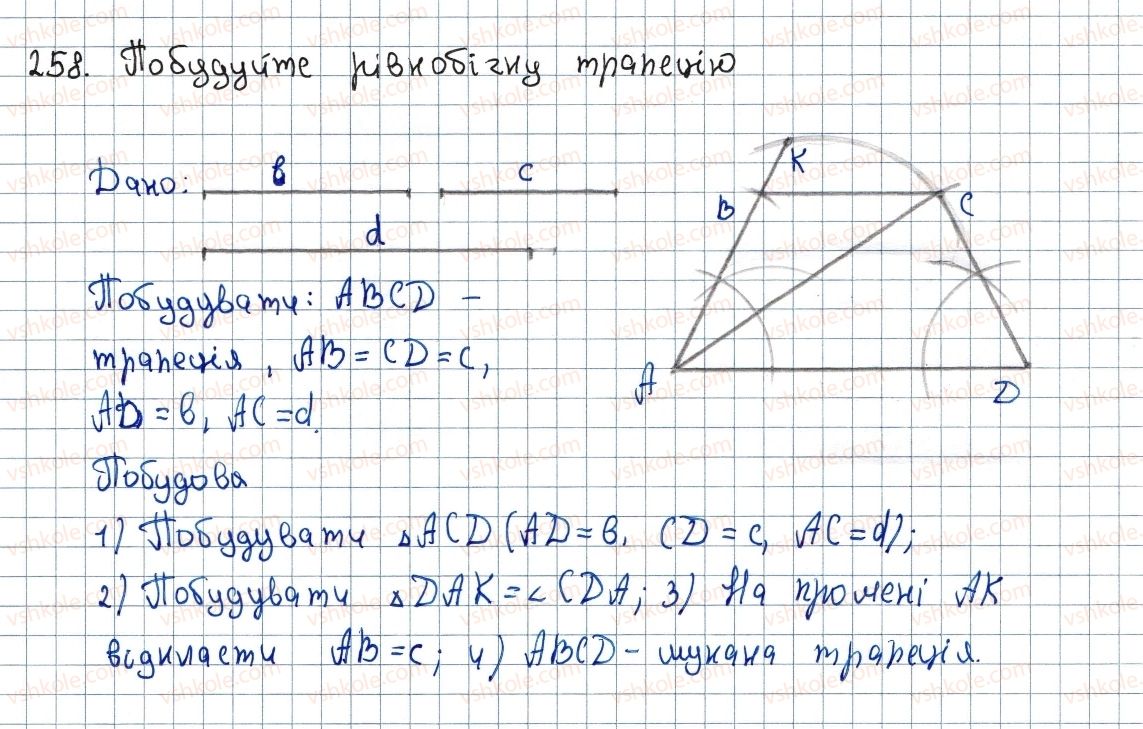 258. Побудуйте рівнобічну трапецію
Дано: в c
d
K
B C
A D
Побудувати: ABCD –
трапеція, AB = CD = c,
AD = в, AC = d.
Побудова
1) Побудувати △ACD (AD = в, CD = c, AC = d);
2) Побудувати △DAK = ∠CDA; 3) На промені AK
відкласти AB = c; 4) ABCD – шукана трапеція.
vshkole.com